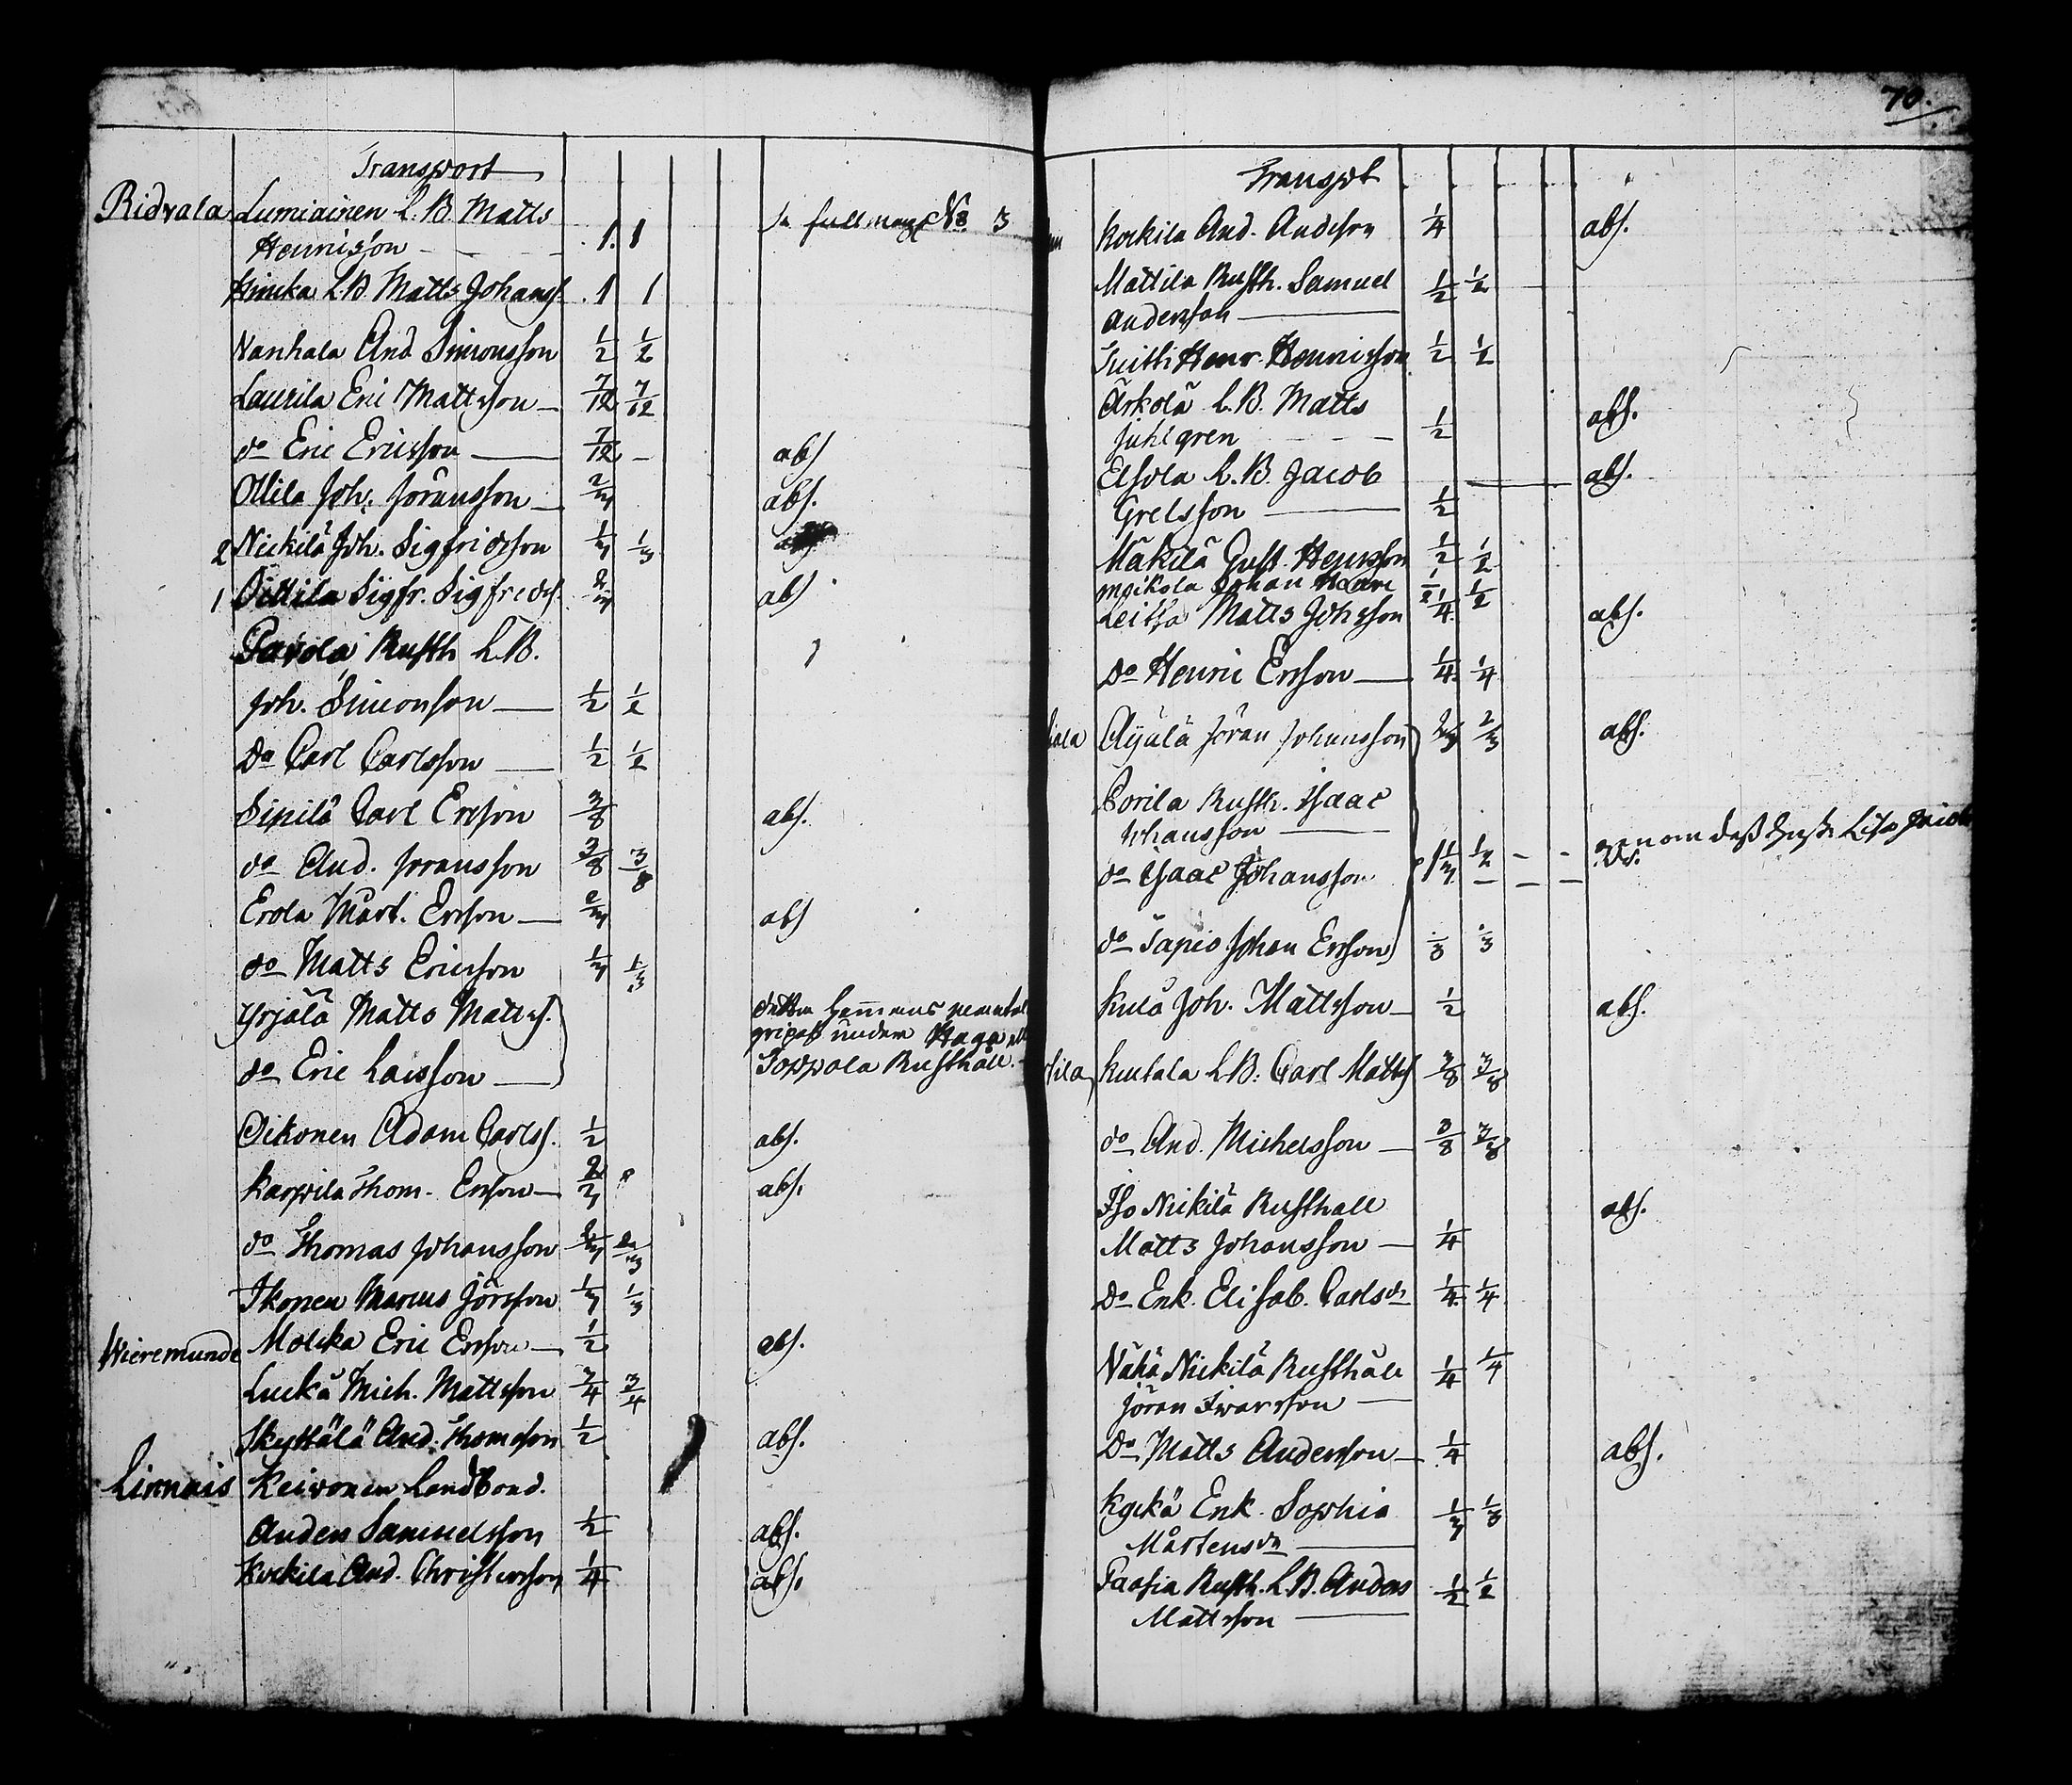 70.
Transport
Ridvala Lumiainen L. B. Matts
Henrisson 1. 1 No 3
L B. Matts Johanss. 1 1
Nanhala And Simonsson 1/2 1/2
Laurila Eric Mattsson 7/12 7/12
do Eric Ericsson 7/12 - abs
Ollila Joh. Jöransson 2/3 abs.
2 Nickilä Joh. Sigfridsson 1/3 1/3
1 Oittila Sigfr. Sigfreds. 2/3 abs
Pavola Rusth L.B.
Joh. Simonson 1/2 1/2
Do Carl Carlsson 1/2 1/2
Sipilä Carl Ersson 3/8 abs.
do And. Joransson 3/8 3/8
Erola Mårt. Ersson 2/3 abs
do Matts Ericsson 1/3 1/3
Yrjälä Matts Matts.
under
do Eric Larsson Toppola Rusthåll.
Oikonen Adam Carlss. 1/2 abs.
Karpila Thom. Ersson 2/3 abs.
do Thomas Johansson 2/3 2/3
Ikonen Marcus Jörsson 1/3 1/3
Wieremunde Molcka Eric Ersson 1/2 abs.
Luckä Mich. Mattsson 3/4 3/4
Skyttälä And. Thomsson 1/2 abs.
Limnais Keivonen Landbond.
Anders Samuelsson 1/2 abs.
Kockila And. Christersson 1/4 abs.
Transpt
Kockila And. Andsson 1/4 abs.
Mattila Rusth. Samuel 1/2 1/2
Andersson
Henr. Henrisson 1/2 1/2
Ärkölä L. B. Matts
Juhlgren 1/2 abs.
Elsola L. B. Jacob abs.
Grelsson 1/2
Mäkilä Gust. Henrsson 1/2 1/2
Mäikola Johan 1/2 1/2
Leitsa Matts Johsson 1/4 abs.
do Henric Ersson 1/4 1/4
Äijälä Jöran Johansson 2/3 2/3 abs.
Porila Rusth. Isaac
Johansson
do Isaac Johansson 1 1/3 1/2 - -
do Tapio Johan Ersson 1/3 1/3
Kulä Joh. Mattsson 1/2 abs.
Kutala L B. Carl Matts 3/8 3/8
do And. Michelsson 3/8 3/8
Iso Nickilä Rusthåll abs.
Matts Johansson 1/4
Do Enk. Elisab. Carlsdr 1/4 1/4
Nähä Nickilä Rusthåll 1/4 1/4
Jöran Iwarsson
Do Matts Andersson 1/4 abs.
Kyckä Enk. Sophia 1/3 1/3
Mårtensdr
Paasia Rusth. L B. Anders 1/2 1/2
Mattsson